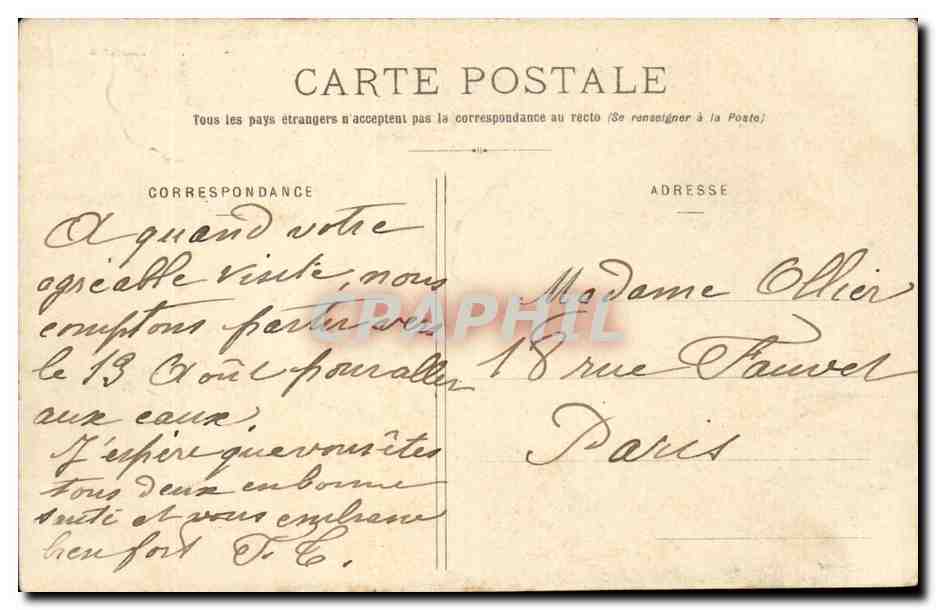 CARTE POSTALE
Tous les pays étrangers n'acceptent pas la correspondance au recto (Se renseigner à la Poste)
CORRESPONDANCE
A quand votre
agréable visite, nous
comptons partir vers
le 13 Août pour aller
aux eaux.
J'espère que vous êtes
tous deux en bonne
santé et vous embrasse
bien fort
ADRESSE
Madame Ollier
18 rue Fauvet
Paris
CPAPHIL